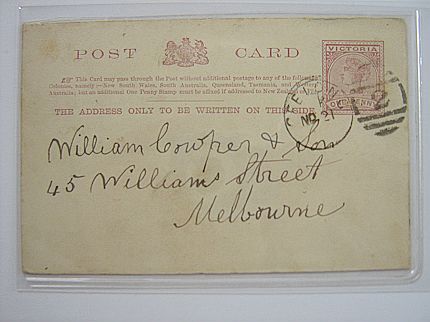 POST CARD
VICTORIA
This Card may pass through the Post without additional postage to any of the following
Colonies, namely:—New South Wales, South Australia, Queensland, Tasmania, and Western
Australia; but an additional One Penny Stamp must be affixed if addressed to New Zealand
ONE PENNY
THE ADDRESS ONLY TO BE WRITTEN ON THIS SIDE
NO 21
William Cowper & Son
45 Williams Street
Melbourne